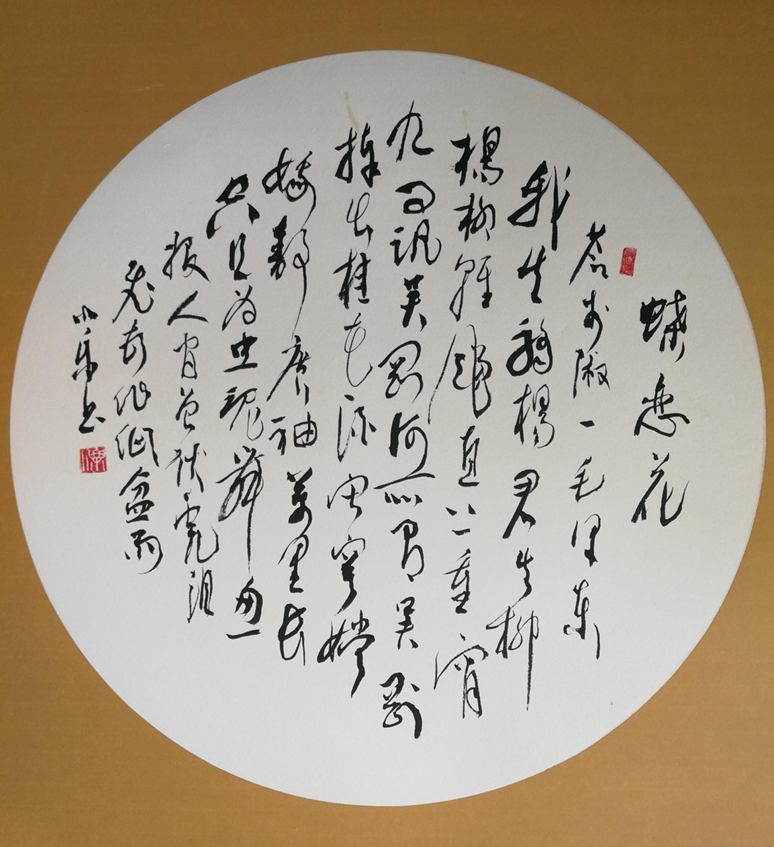 蝶恋花
答李淑一毛泽东
我失骄楊君失柳
楊柳轻飏直上重霄
九问讯吴刚何所有吴刚
捧出桂花酒寂寞嫦
娥舒广袖萬里长
空且为忠魂舞忽
报人间曾伏虎泪
飞顿作倾盆雨
小 书